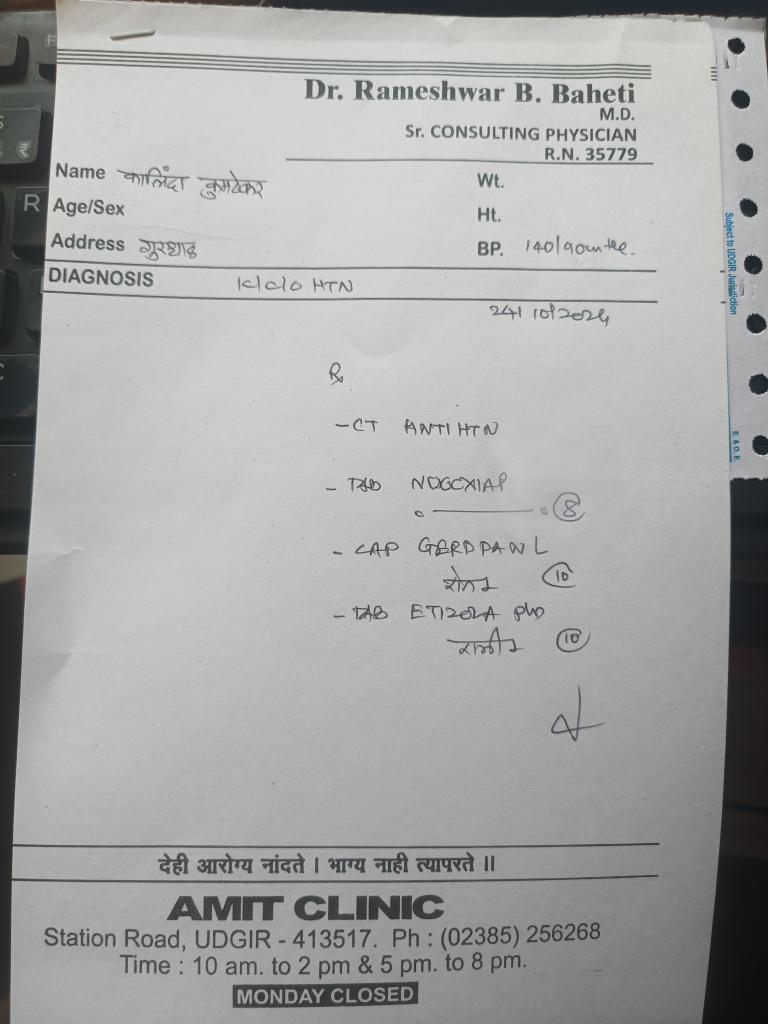 Dr. Rameshwar B. Baheti
M.D.
Sr. CONSULTING PHYSICIAN
R.N. 35779
Name कालिंदा कुमठेकर
Wt.
Age/Sex
Ht.
Address
BP. 140/90
DIAGNOSIS K/c/o HTN
24/10/2024
Rx
- CT ANTI HTN
- TAB
8
- CAP GERDPAN L
10
- TAB ETIZOLA
10
देही आरोग्य नांदते । भाग्य नाही त्यापरते ॥
AMIT CLINIC
Station Road, UDGIR - 413517. Ph : (02385) 256268
Time : 10 am. to 2 pm & 5 pm. to 8 pm.
MONDAY CLOSED
Subject to UDGIR Jurisdiction
E. & O. E.